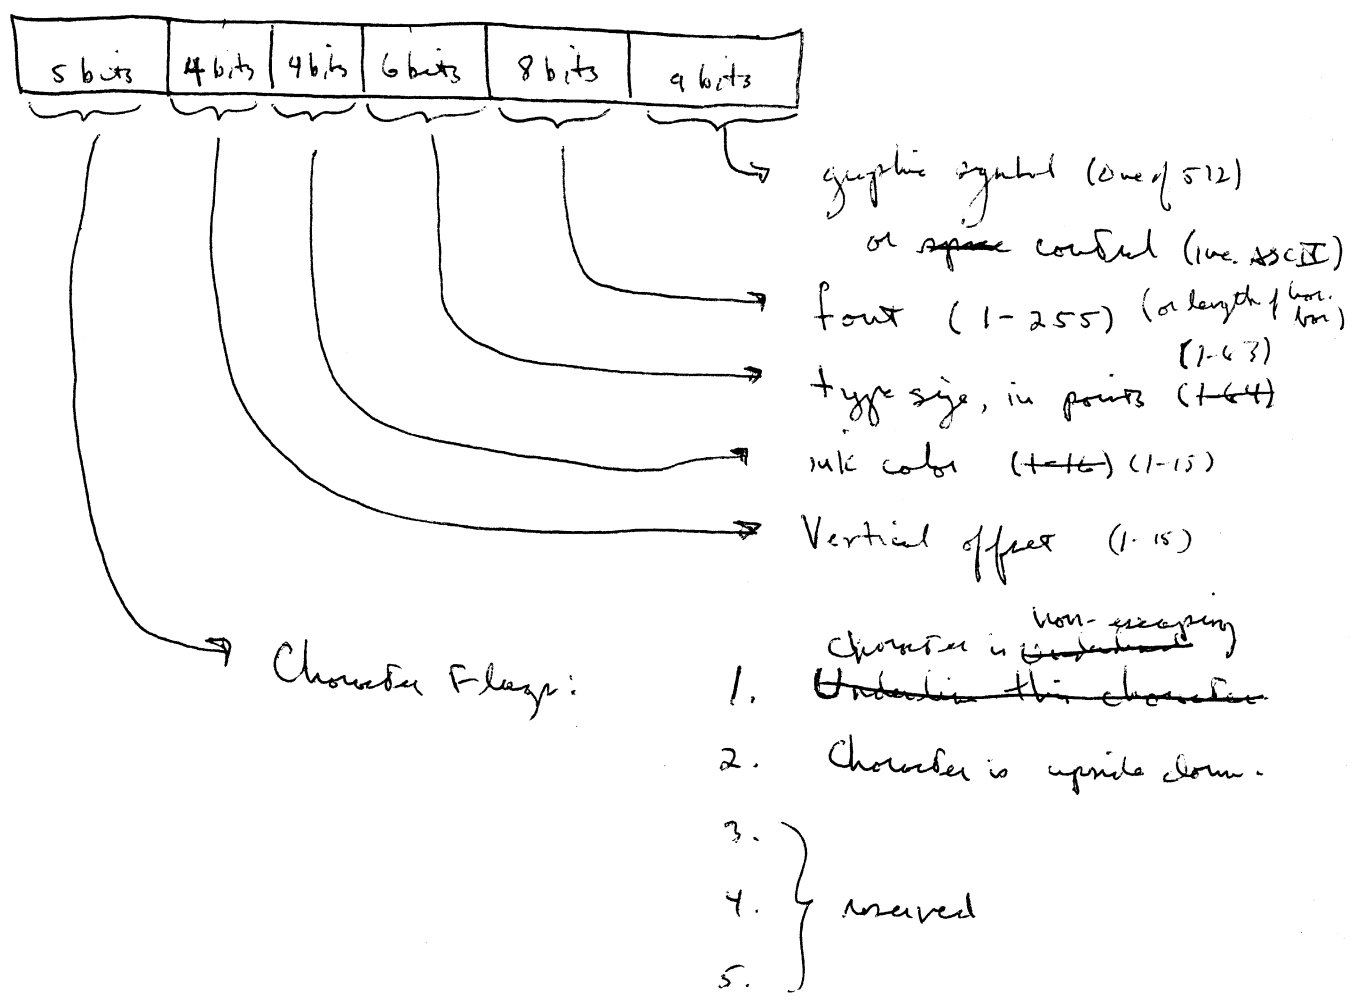 5 bits 4 bits 4 bits 6 bits 8 bits 9 bits
graphic symbol (one of 512)
or space control (inc. ASCII)
font (1-255) (or length of hor. bar)
(1-63)
type size, in points (1-64)
ink color (1-16) (1-15)
Vertical offset (1-15)
non-escaping
Character is Underlined
Character Flags: 1. Underline this character
2. Character is upside down.
3.
4. reserved
5.